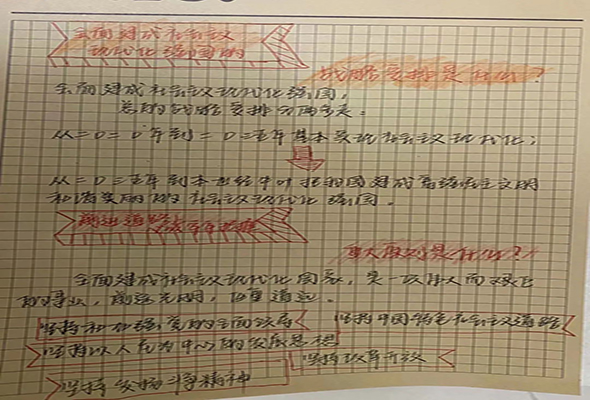 全面建成社会主义
现代化强国的
战略安排是什么?
全面建成社会主义现代化强国,
总的战略安排分两步走。
从二〇二〇年到二〇三五年基本实现社会主义现代化;
从二〇三五年到本世纪中叶把我国建成富强民主文明
和谐美丽的社会主义现代化强国。
前进道路
重大原则是什么?
全面建成社会主义现代化国家,是一项伟大而艰巨
的事业,前途光明,任重道远。
坚持和加强党的全面领导
坚持中国特色社会主义道路
坚持以人民为中心的发展思想
坚持改革开放
坚持发扬斗争精神